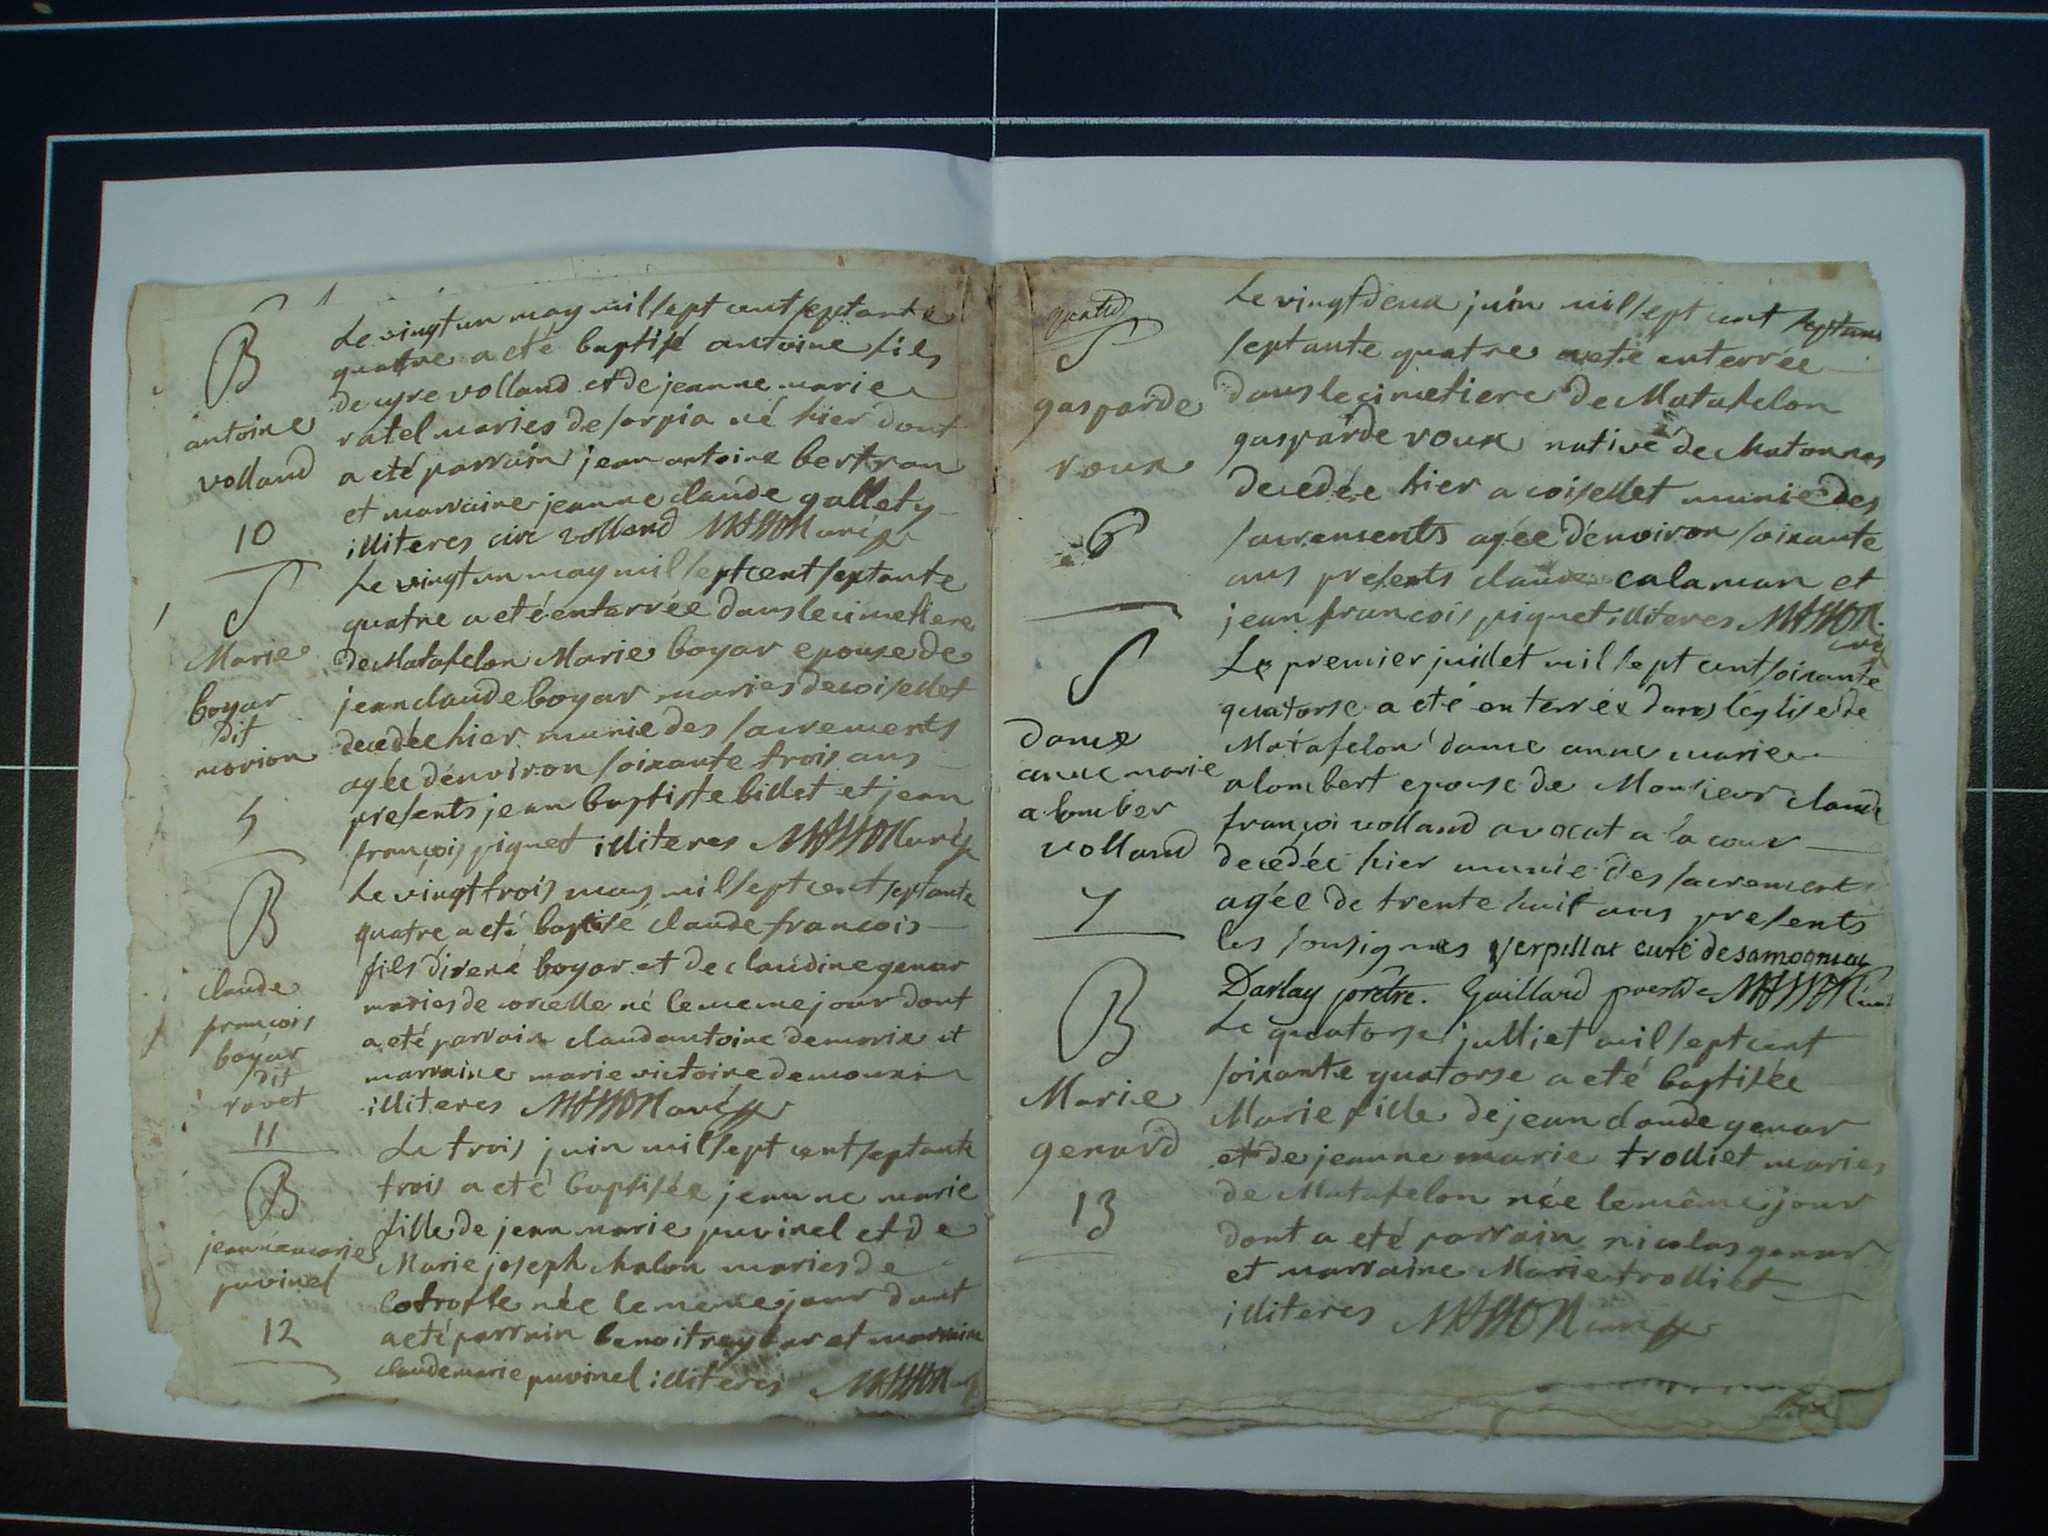 B
antoine
volland
10
Le vingt un may mil sept cent septante
quatre a eté baptisé antoine fils
de cyre volland et de jeanne marie
ratel maries de sorpia né hier dont
a eté parrain jean antoine bertran
et marraine jeanne claude gallety
illiteres cire volland MASSON curé
S
Marie
boyar
dit
morion
5
Le vingt un may mil sept cent septante
quatre a eté enterrée dans le cimetiere
de Matafelon Marie boyar epouse de
jean claude boyar maries de coiselet
decedée hier munie des sacrements
agée d'environ soixante trois ans
presents jean baptiste billet et jean
francois piquet illiteres MASSON curé
B
claude
francois
boyar
dit
ravet
11
Le vingt trois may mil sept cent septante
quatre a eté baptisé claude francois
fils di rené boyar et de claudine genar
maries de corcelle né le meme jour dont
a eté parrain claud antoine demorie et
marraine marie victoire demoux
illiteres MASSON curé
B
jeanne marie
puvinel
12
Le trois juin mil sept cent septante
trois a eté baptisée jeanne marie
fille de jean marie puvinel et de
Marie joseph chalon maries de
cotrofte née le meme jour dont
a eté parrain benoit et marraine
claude marie puvinel illiteres MASSON
S
gasparde
roux
6
Le vingt deux juin mil sept cent septante
septante quatre a eté enterrée
dans le cimetiere de Matafelon
gasparde roux native de chatonnas
decedée hier a coiselet munie des
sacrements agée d'environ soixante
ans presents claude calaman et
jean francois piquet illiteres MASSON
curé
S
dame
anne marie
alomber
volland
7
Le premier juillet mil sept cent soixante
quatorse a eté enterrée dans l'église de
Matafelon dame anne marie
alombert epouse de Monsieur claude
françoi volland avocat a la cour
decedée hier munie des sacrements
agée de trente huit ans presents
les sousignes verpillat curé de samognat
Darlay prêtre. Gaillard MASSON curé
B
Marie
genard
13
Le quatorse julliet mil sept cent
soixante quatorse a eté baptisée
Marie fille de jean claude genar
et de jeanne marie trolliet maries
de Matafelon née le même jour
dont a eté parrain nicolas genar
et marraine Marie trolliet
illiteres MASSON curé